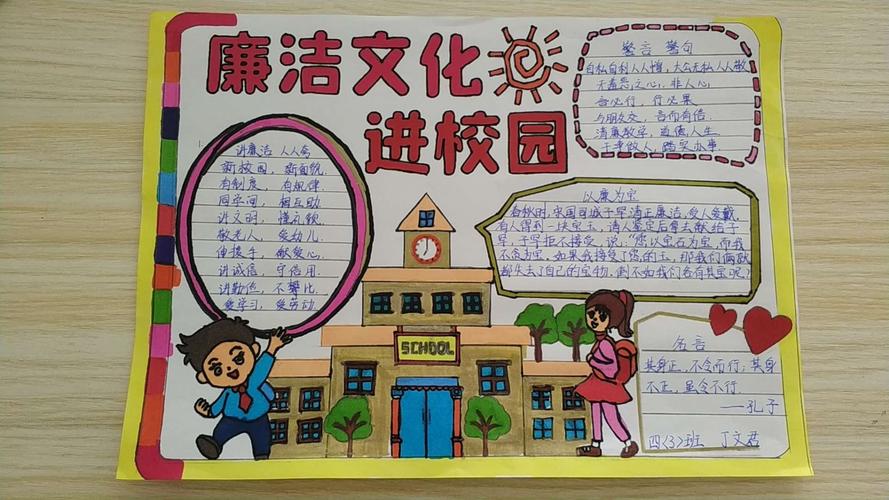 廉洁文化
进校园
警言 警句
自私自利人人憎，大公无私人人敬
无羞恶之心，非人心
言必行，行必果
与朋友交，言而有信
清廉教学，道德人生
干净做人，踏实办事
讲廉洁 人人夸
新校园，新面貌
有制度，有规律
同学间，相互助
讲文明，懂礼貌
敬老人，爱幼儿
伸援手，献爱心
讲诚信，守信用
讲勤俭，不攀比
爱学习，爱劳动
以廉为宝
春秋时，宋国司城子罕清正廉洁，受人爱戴，
有人得到一块宝玉，请人鉴定后拿去献给子
罕，子罕拒不接受，说：“您以宝石为宝，而我
不贪为宝。如果我接受了您的玉，那我们俩就
都失去了自己的宝物，倒不如我们各有其宝呢？
SCHOOL
名言
其身正，不令而行；其身
不正，虽令不行
——孔子
四(3)班 丁文君